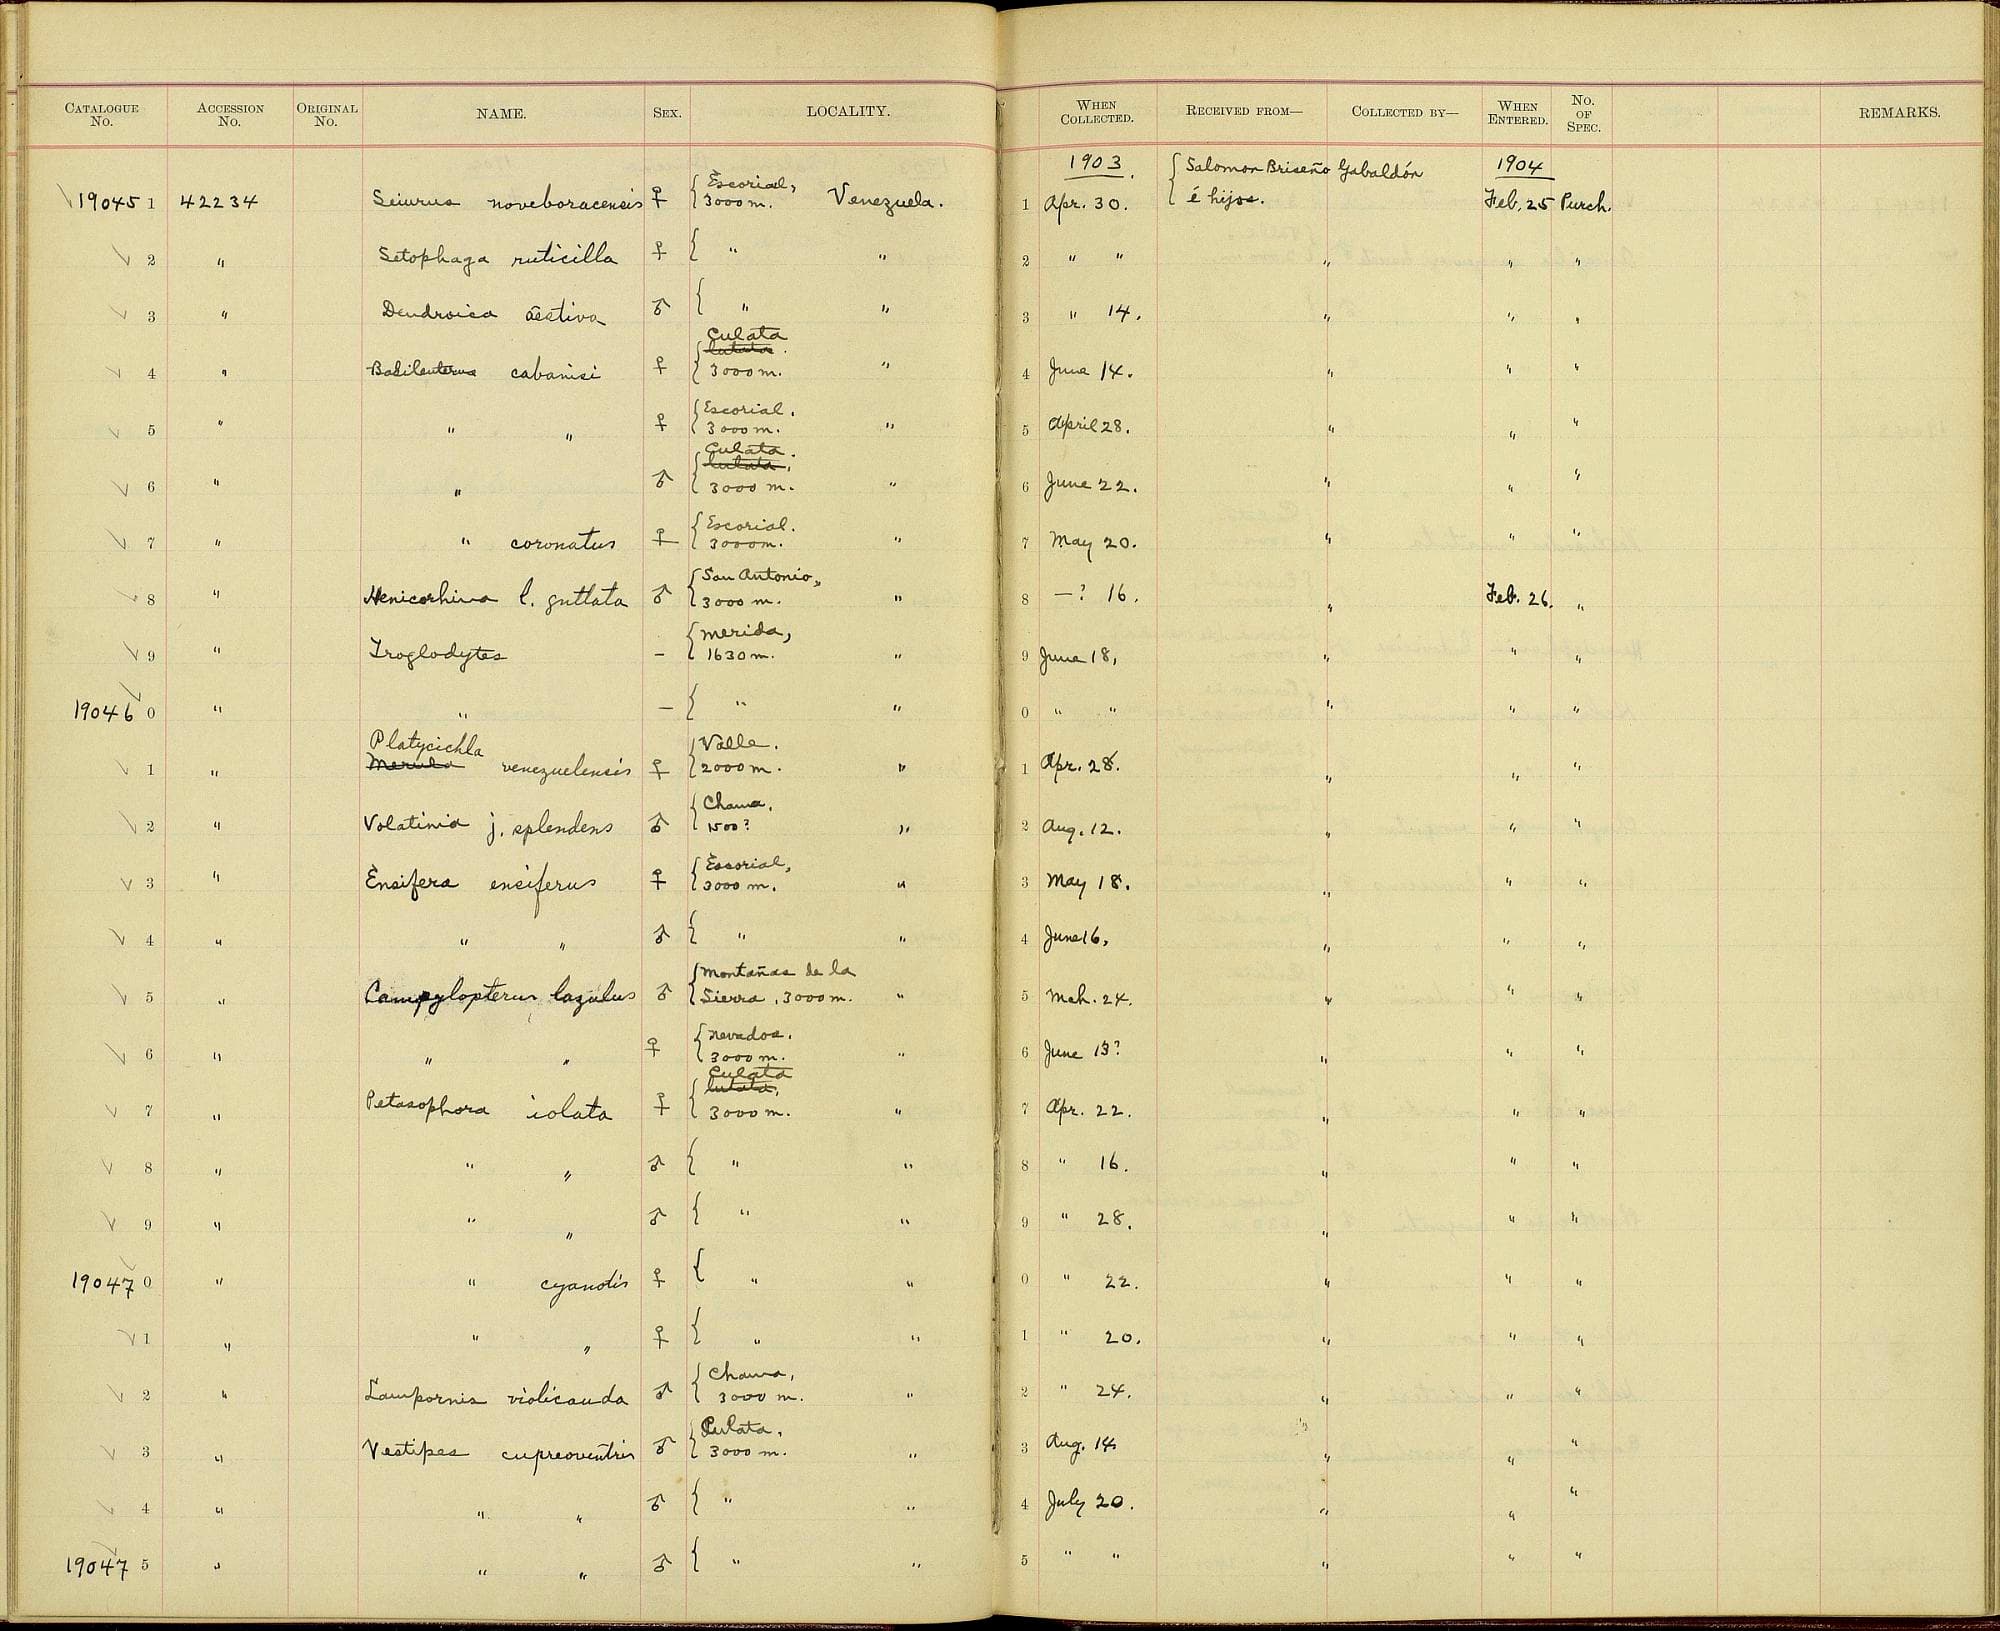 CATALOGUE No. ACCESSION No. ORIGINAL No. NAME. SEX. LOCALITY. WHEN COLLECTED. RECEIVED FROM— COLLECTED BY— WHEN ENTERED. No. OF SPEC. REMARKS.
1903. { Salomon Briseño Gabaldón 1904
19045 1 42234 Seiurus noveboracensis ♀ { Escorial, 3000 m. Venezuela. 1 Apr. 30. é hijos. Feb. 25 Purch.
2 " Setophaga ruticilla ♀ { " " 2 " " " " "
3 " Dendroica aestiva ♂ { " " 3 " 14. " " "
4 " Basileuterus cabanisi ♀ { Culata 3000 m. " 4 June 14. " " "
5 " " " ♀ { Escorial. 3000 m. " 5 April 28. " " "
6 " " ♂ { Culata. 3000 m. " 6 June 22. " " "
7 " " coronatus ♀ { Escorial. 3000 m. " 7 May 20. " " "
8 " Henicorhina l. guttata ♂ { San Antonio, 3000 m. " 8 —? 16. " Feb. 26. "
9 " Troglodytes – { Merida, 1630 m. " 9 June 18, " " "
19046 0 " " – { " " 0 " " " " "
Platycichla
1 " Merula venezuelensis ♀ { Valle. 2000 m. " 1 Apr. 28. " " "
2 " Volatinia j. splendens ♂ { Chama, 1500? " 2 Aug. 12. " " "
3 " Ensifera ensiferus ♀ { Escorial, 3000 m. " 3 May 18. " " "
4 " " " ♂ { " " 4 June 16, " " "
5 " Campylopterus lazulus ♂ { Montañas de la Sierra, 3000 m. " 5 Mch. 24. " " "
6 " " " ♀ { Nevados. 3000 m. " 6 June 13? " " "
7 " Petasophora iolata ♀ { Culata 3000 m. " 7 Apr. 22. " " "
8 " " " ♂ { " " 8 " 16. " " "
9 " " " ♂ { " " 9 " 28. " " "
19047 0 " " cyanotis ♀ { " " 0 " 22. " " "
1 " " " ♀ { " " 1 " 20. " " "
2 " Lampornis violicauda ♂ { Chama, 3000 m. " 2 " 24. " " "
3 " Vestipes cupreoventris ♂ { Culata, 3000 m. " 3 Aug. 14 " " "
4 " " " ♂ { " " 4 July 20. " " "
19047 5 " " " ♂ { " " 5 " " " " "